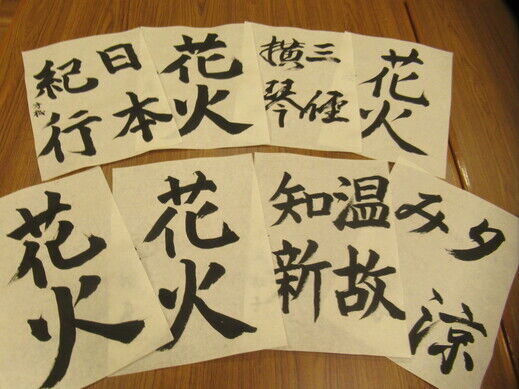 日本
紀行
花火
三径
横琴
花火
花火
花火
温故
知新
夕涼
み